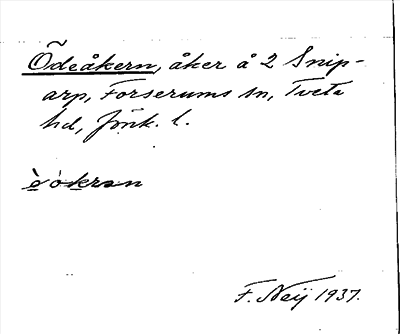 Ödeåkern, åker å 2 Snip-
arp, Forserums sn, Tveta
hd, Jönk. l.
è ókrən
F. Neij 1937.